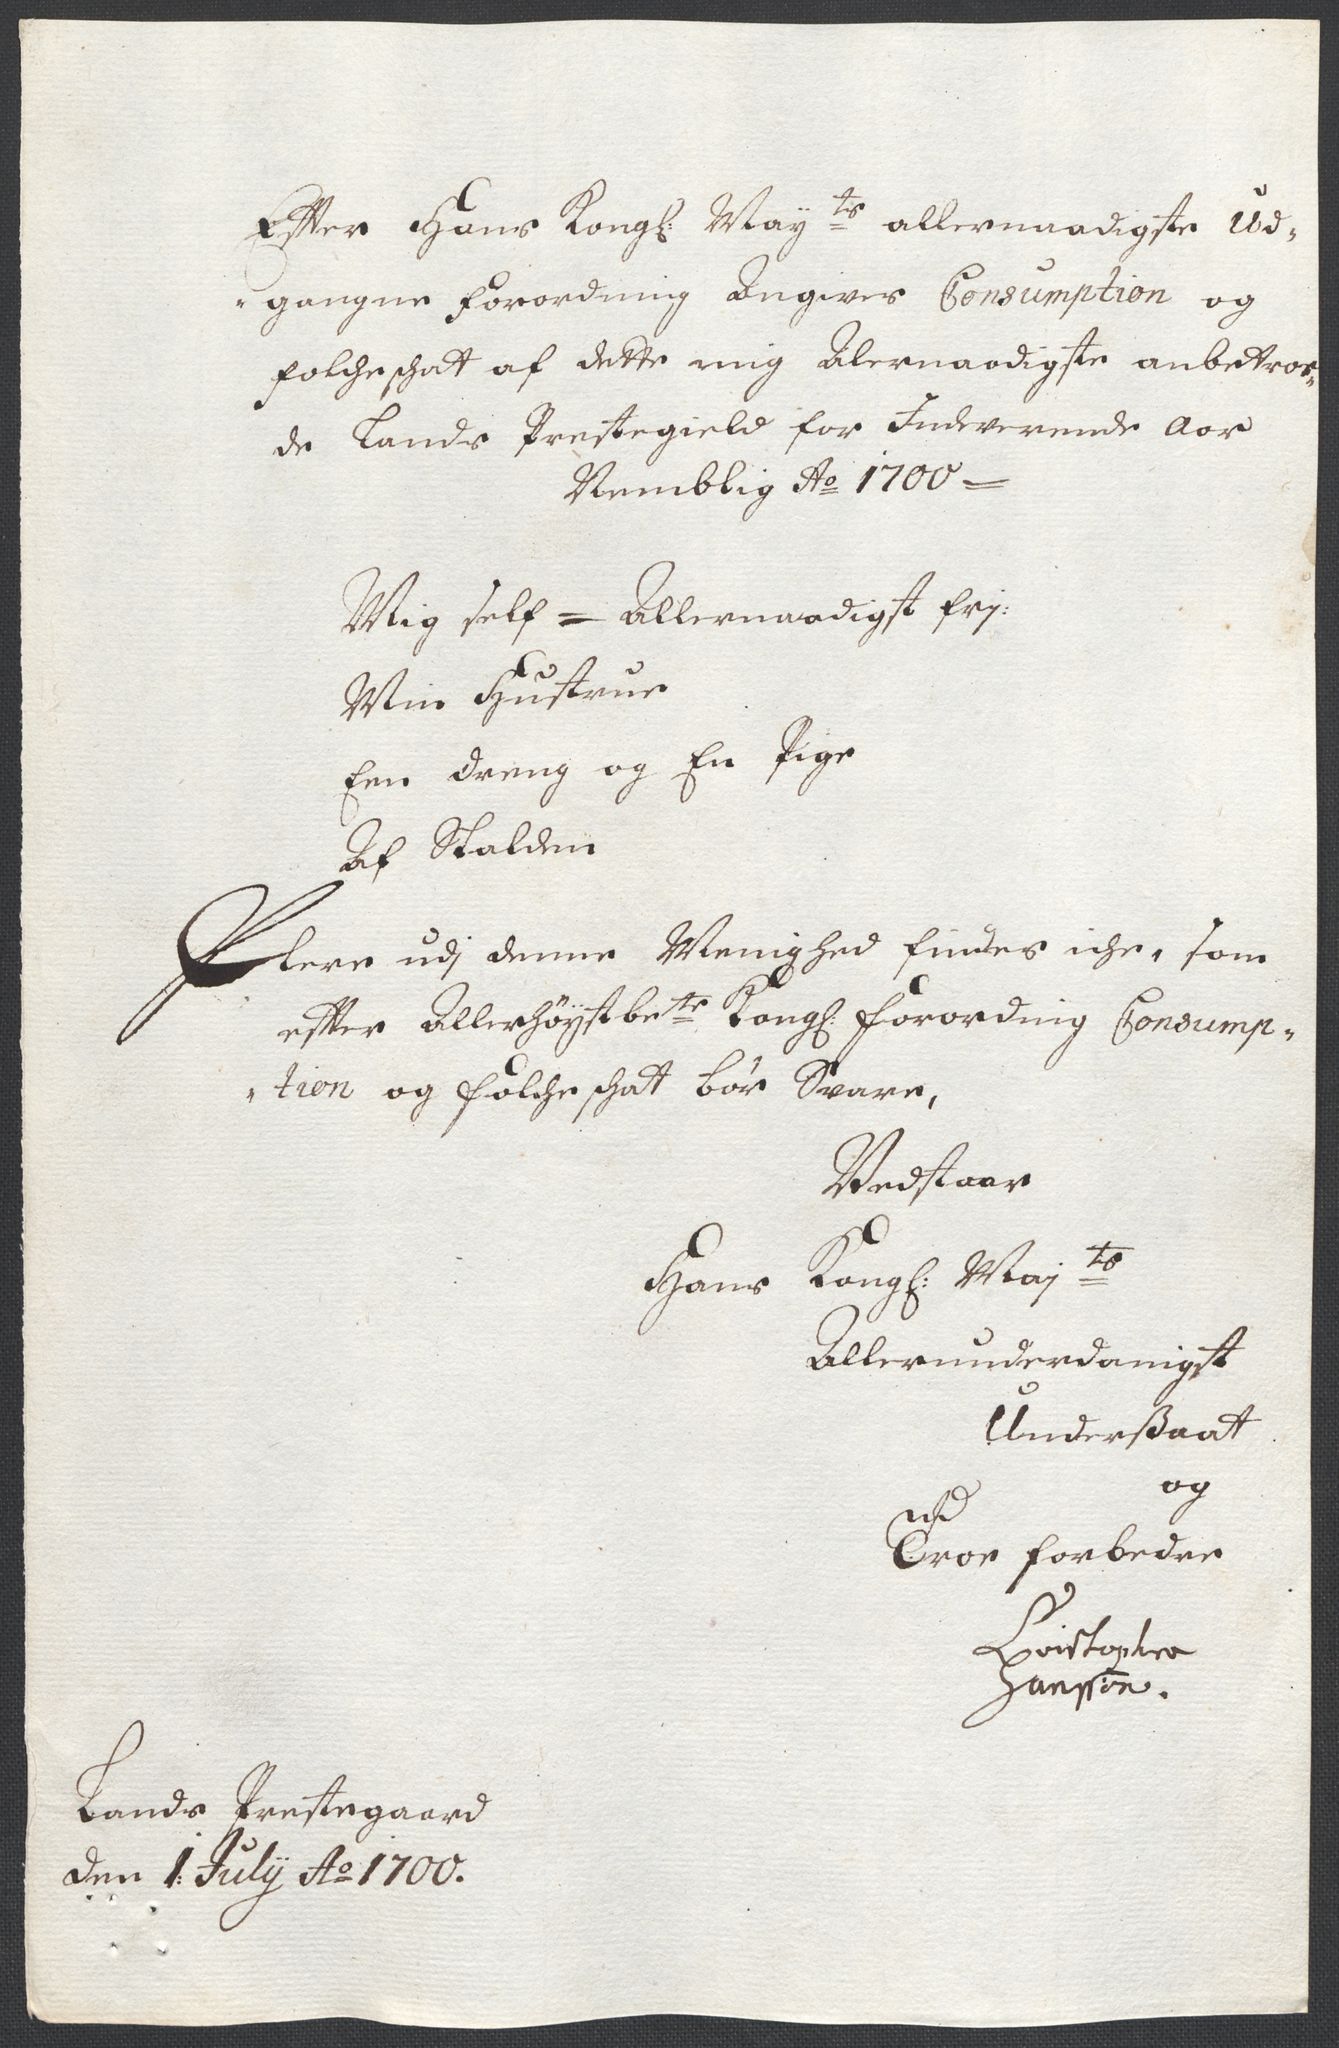 Effter Hans Kongl: May^ts allernaadigste Ud-
-gangne forordning Angives Consumption og
folcheschatt af dette mig Alernaadigste anbetroe-
de Lands Prestegield for Indeverende Aar
Nemblig Ao 1700 =
Mig self = Allernaadigst frj:
Min Hustrue
Een dreng og En Pige
Af Stalden
Flere udj denne Menighed findes iche, som
effter Allerhöystbe^te Kongl: forording Consump-
-tion og folcheschatt bör Svare,
Vedstaar
Hans Kongl: Maj^ts
Allerunderdanigst
Underßaatt
og
Troe forbedre
Christopher
Hanssøn.
Lands Prestegaard
den 1: Julÿ Ao 1700.